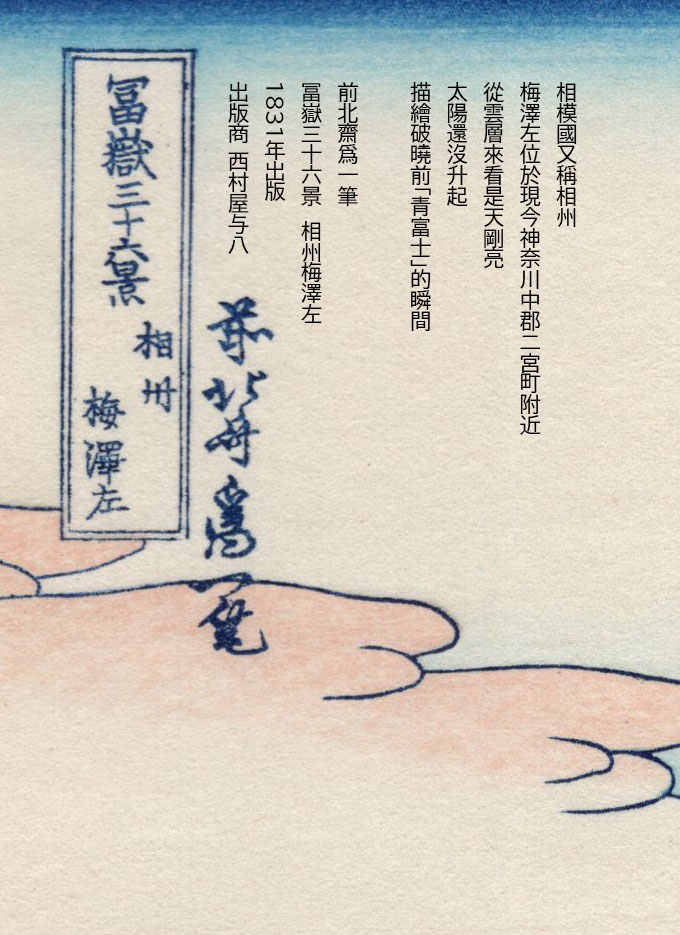 相模國又稱相州
梅澤左位於現今神奈川中郡二宮町附近
從雲層來看是天剛亮
太陽還沒升起
描繪破曉前「青富士」的瞬間
前北齋爲一筆
冨嶽三十六景 相州梅澤左
1831年出版
出版商 西村屋与八
前北斎爲一筆
冨嶽三十六景
相州
梅澤左